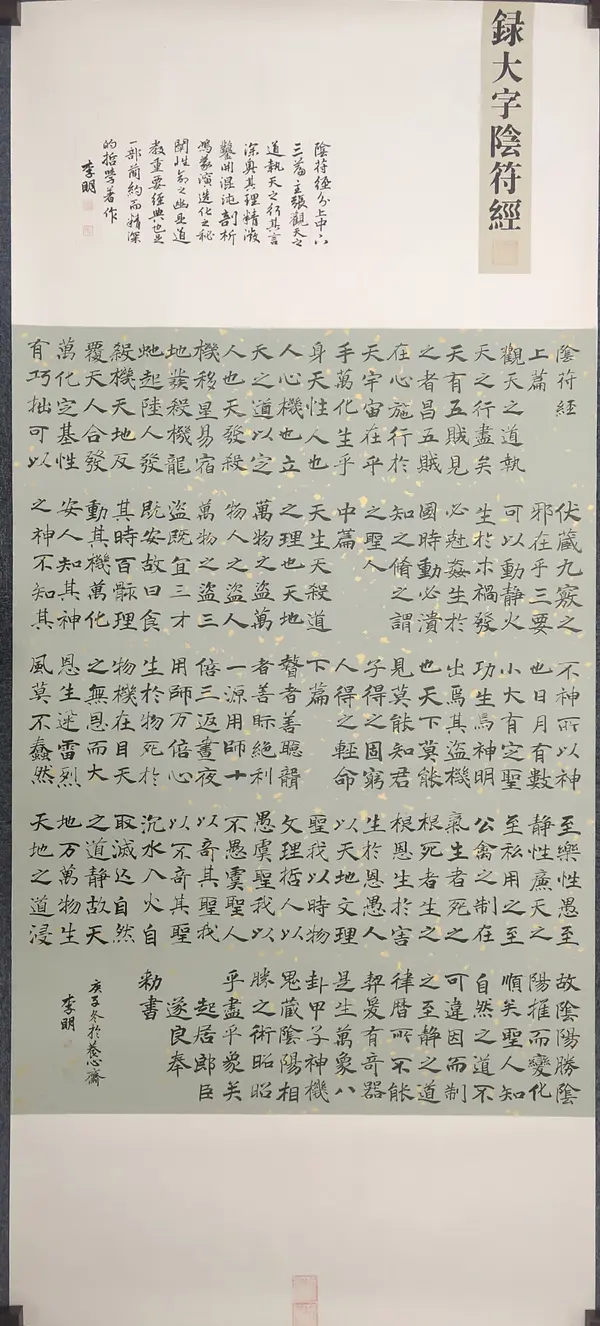 録大字陰符經
陰符經分上中下
三篇主張觀天之
道執天之行其言
深奥其理精微
鑿開混沌剖析
鴻蒙演造化之秘
闡性命之幽且道
教重要經典也是
一部簡約而精深
的哲學著作
李明
陰符經
上篇
觀天之道執
天之行盡矣
天有五賊見
之者昌五賊
在心施行於
天宇宙在乎
手萬化生乎
身天性人也
人心機也立
天之道以定
人也天發殺
機移星易宿
地發殺機龍
虵起陸人發
殺機天地反
覆天人合發
萬化定基性
有巧拙可以
伏藏九竅之
邪在乎三要
可以動靜火
生於木禍發
必尅姦生於
國時動必潰
知之脩之謂
之聖人
中篇
天生天殺道
之理也天地
萬物之盜萬
物人之盜人
萬物之盜三
盜既宜三才
既安故曰食
其時百骸理
動其機萬化
安人知其神
之神不知其
不神所以神
也日月有數
小大有定聖
功生焉神明
出焉其盜機
也天下莫能
見莫能知君
子得之固窮
人得之輕命
下篇
瞽者善聽聾
者善眎絕利
一源用師十
倍三返晝夜
用師万倍心
生於物死於
物機在目天
之無恩而大
恩生迅雷烈
風莫不蠢然
至樂性愚至
靜性廉天之
至私用之至
公禽之制在
氣生者死之
根死者生之
根恩生於害
生於恩愚人
以天地文理
聖我以時物
文理哲人以
愚虞聖我以
不愚虞聖人
以奇其聖我
以不奇其聖
沉水入火自
取滅迯自然
之道靜故天
地万萬物生
天地之道浸
故陰陽勝陰
陽推而變化
順矣聖人知
自然之道不
可違因而制
之至靜之道
律曆所不能
契爰有奇器
是生萬象八
卦甲子神機
鬼藏陰陽相
勝之術昭昭
乎盡乎象矣
起居郎臣
遂良奉
勑書
庚子冬於養心齋
李明